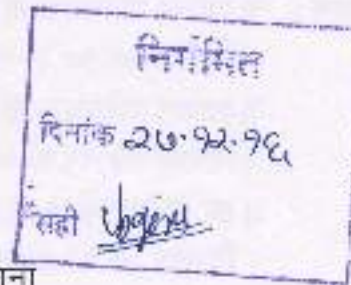 निर्गमित
दिनांक २७.१२.१६
सही